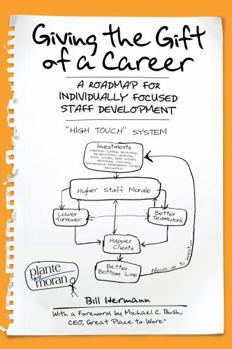 Giving the Gift
of a Career
A ROADMAP FOR
INDIVIDUALLY FOCUSED
STAFF DEVELOPMENT
"HIGH TOUCH" SYSTEM
Investments
Higher Staff Morale
Lower
Turnover
Better
Teamwork
Happier
Clients
Better
Bottom Line
plante
moran
Bill Hermann
With a foreword by Michael C. Bush,
CEO, Great Place to Work®